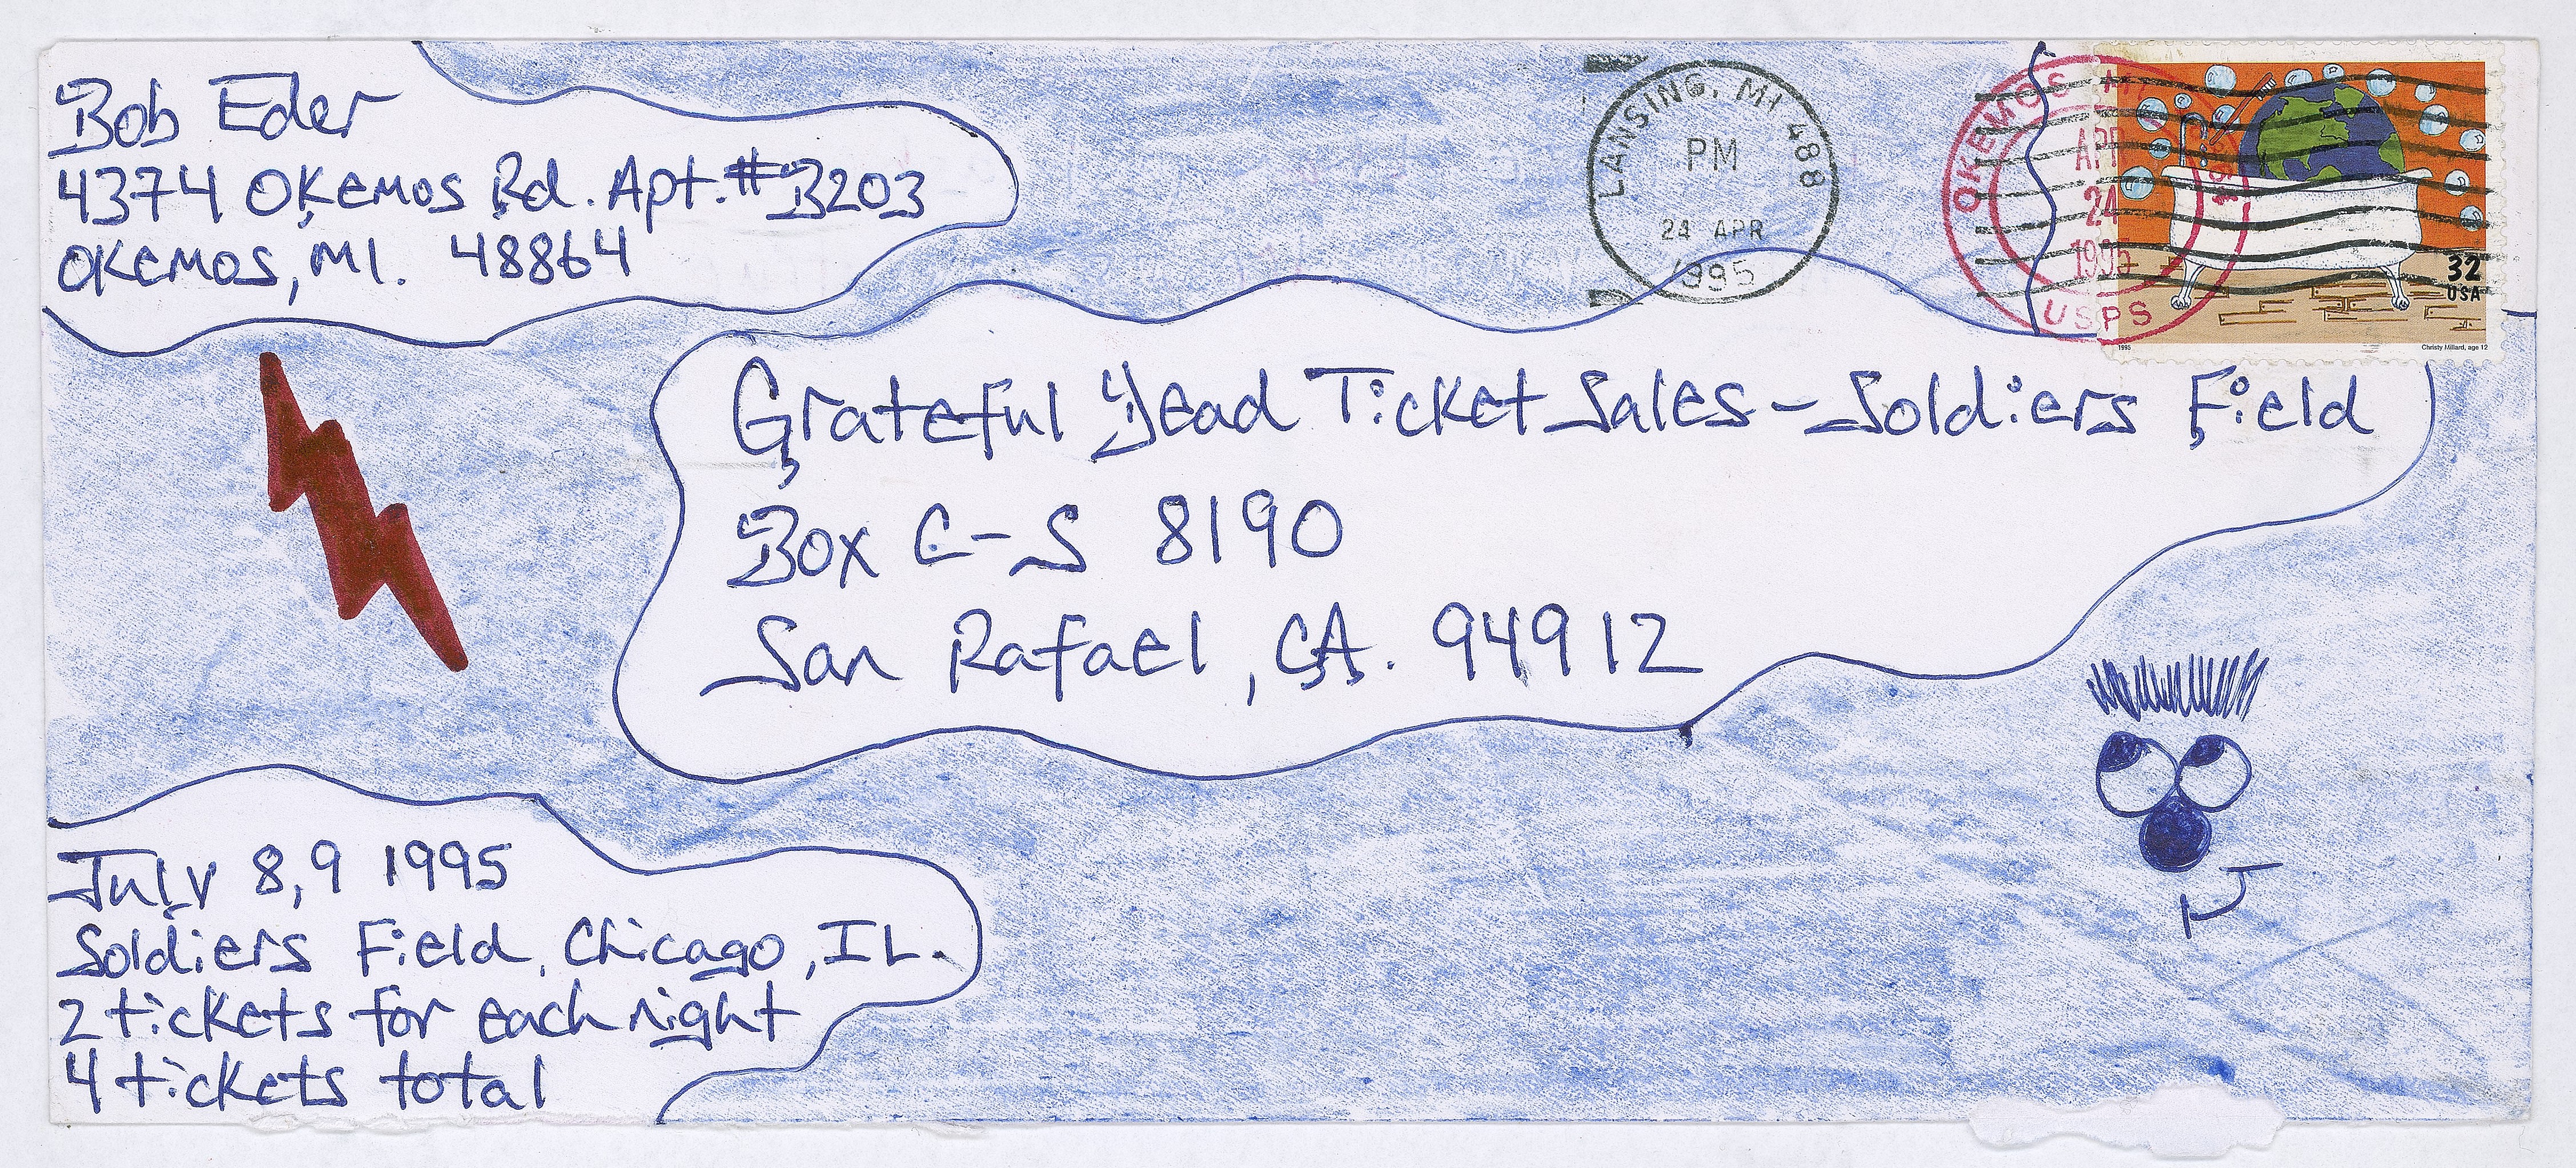 Bob Eder
4374 Okemos Rd. Apt. #B203
Okemos, MI. 48864
LANSING, MI 488
PM
24 APR
1995
OKEMOS MI
APR
24
1995
USPS
32
USA
1995
Christy Millard, age 12
Grateful Dead Ticket Sales - Soldiers Field
Box C-S 8190
San Rafael, CA. 94912
July 8,9 1995
Soldiers Field, Chicago, IL.
2 tickets for each night
4 tickets total